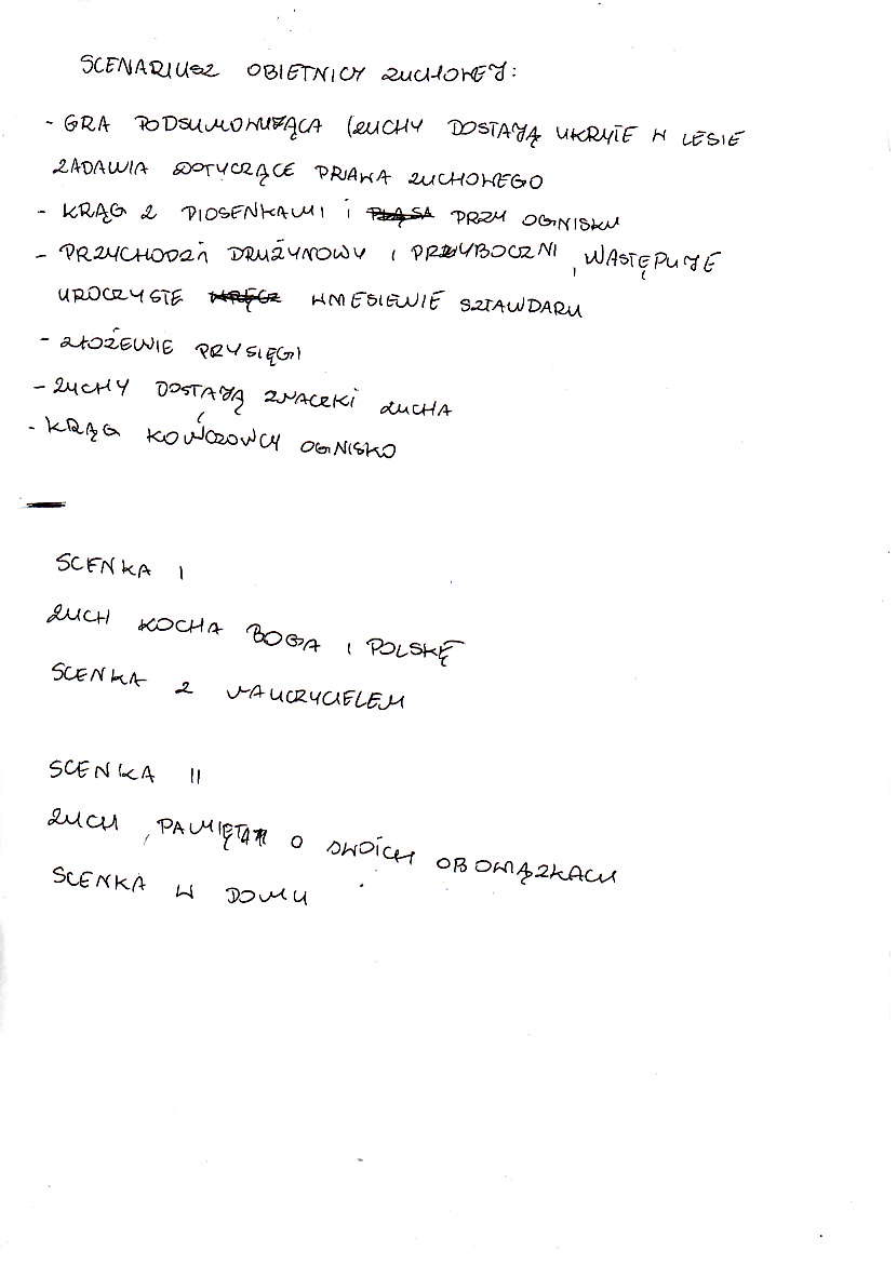 SCENARIUSZ OBIETNICY ZUCHOWEJ:
- GRA PODSUMOWUJĄCA (ZUCHY DOSTAJĄ UKRYTE W LESIE
ZADANIA DOTYCZĄCE PRAWA ZUCHOWEGO
- KRĄG Z PIOSENKAMI I PLĄSA PRZY OGNISKU
- PRZYCHODZI DRUŻYNOWY I PRZYBOCZNI, NASTĘPUJE
UROCZYSTE WRĘCZ WNIESIENIE SZTANDARU
- ZŁOŻENIE PRYSIĘGI
- ZUCHY DOSTAJĄ ZNACZKI ZUCHA
- KRĄG KOŃCZOWCY OGNISKO
SCENKA I
ZUCH KOCHA BOGA I POLSKĘ
SCENKA Z NAUCZYCIELEM
SCENKA II
ZUCH PAMIĘTA O SWOICH OBOWIĄZKACH
SCENKA W DOMU